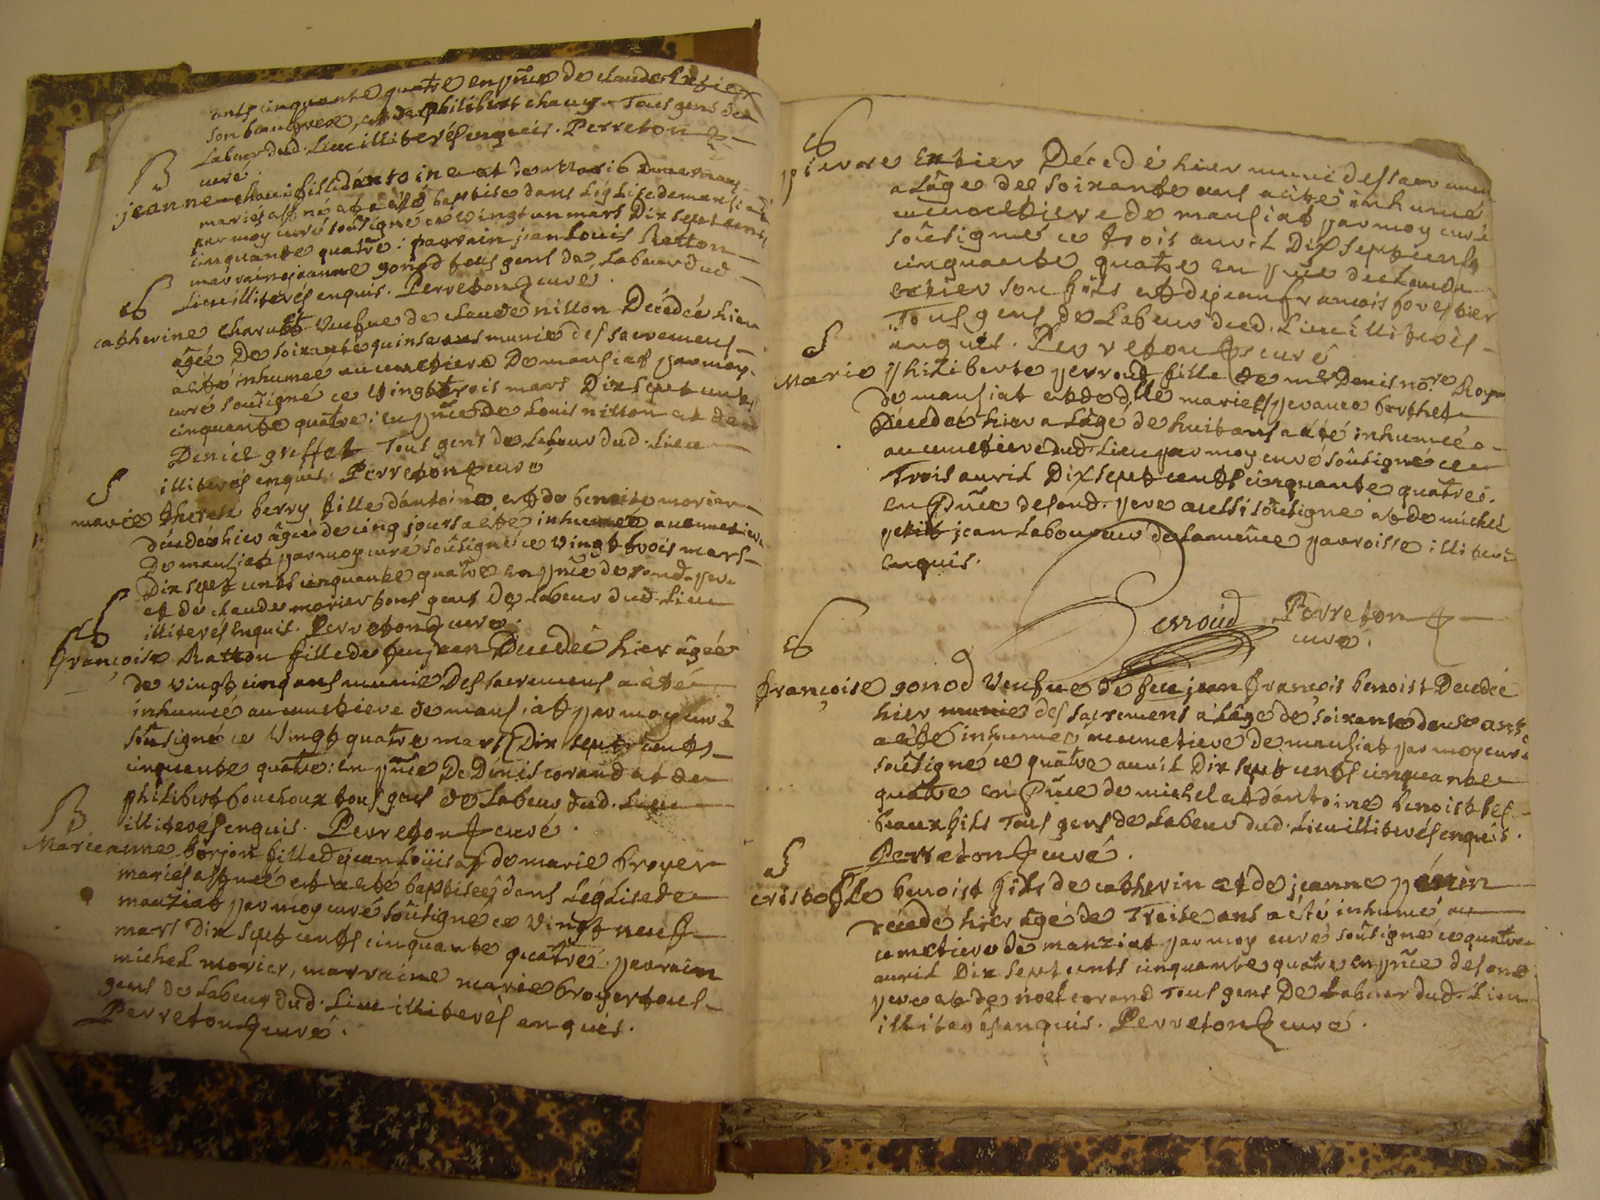 ants cinquante quatre en pñce de claude
son beaufrere, et de philibert chanu Tous gens de
Labeur dud. Lieu illiterés enquis. Perreton
curé.
B
jeanne fille d'antoine et de
mariés est née a été baptisée dans L'église de mansiat
par moy curé soûsigné ce vingt un mars Dix sept cents
cinquante quatre: parrain jean Louis Ratton
marraine jeanne gonod tous gens de Labeur dud.
Lieu illiterés enquis. Perreton curé.
Catherine veufve de claude nillon Décédée hier
âgée De soixante quinse ans munie des sacremens
a été inhumee au cimetiere De mansiat par moy
curé soûsigné ce vingt trois mars Dix sept cents
cinquante quatre: en pñce de Louis nillon et de
Denis greffet Tous gens de Labeur dud. Lieu
illiterés enquis. Perreton curé
S
marie therese berry fille d'antoine et de benoite morier
décédée hier âgée de cinq jours a été inhumée au cimetiere
De mansiat par moy curé soûsigné ce vingt trois mars
Dix sept cents cinquante quatre en pñce de sond. pere
et de claude morier tous gens De Labeur dud. Lieu
illiterés Enquis. Perreton curé.
françoise Ratton fille de feu jean Decedée hier âgée
de vingt cinq ans munie Des sacremens a été
inhumee au cimetiere de mansiat par moy curé
soûsigné ce vingt quatre mars Dix sept cents
cinquante quatre: en pñce De Denis corand et de
philibert bouchoux tous gens de Labeur dud. Lieu
illiterés enquis. Perreton curé.
B
Marie anne borjon fille de jean Loüis et de marie broyer
mariés est née et a été baptisée dans L'église de
manziat par moy curé soûsigné ce vingt neuf
mars Dix sept cents cinquante quatre. parrain
michel morier, marraine marie broyer tous
gens de Labeur dud. Lieu illiterés enquis.
Perreton curé.
pierre Decedé hier muni des sacremens
a Lâge de soixante ans a été inhumé
au cimetiere de mansiat par moy curé
soûsigné ce trois avril Dix sept cents
cinquante quatre en pñce de claude
son fils et de jean françois forestier
Tous gens de Labeur dud. Lieu illiterés
enquis. Perreton curé
S
Marie philiberte perroud fille de mre Denis nore Royal
de mansiat et de dlle marie pierrette berthet
Décédée hier a Lâge de huit ans a été inhumée
au cimetiere dud. Lieu par moy curé soûsigné ce
Trois avril Dix sept cents cinquante quatre.
en pñce de sond. pere aussi soûsigné et de michel
petit jean Laboureur de La même parroisse illiteré
enquis.
Perroud Perreton
curé.
françoise gonod veufve de feu jean françois benoist Decedée
hier munie des sacremens a lâge de soixante deux ans
a été inhumee au cimetiere de mansiat par moy curé
soûsigné ce quatre avril Dix sept cents cinquante
quatre en pñce de michel et d'antoine benoist ses
beaux fils Tous gens de Labeur dud. Lieu illiterés enquis.
Perreton curé.
S
cristofle benoist fils de catherin et de jeanne
décédé hier âgé de Treise ans a été inhumé au
cimetiere de manziat par moy curé soûsigné ce quatre
avril Dix sept cents cinquante quatre en pñce de sond.
pere et de noel corand Tous gens De Labeur dud. Lieu
illiterés enquis. Perreton curé.